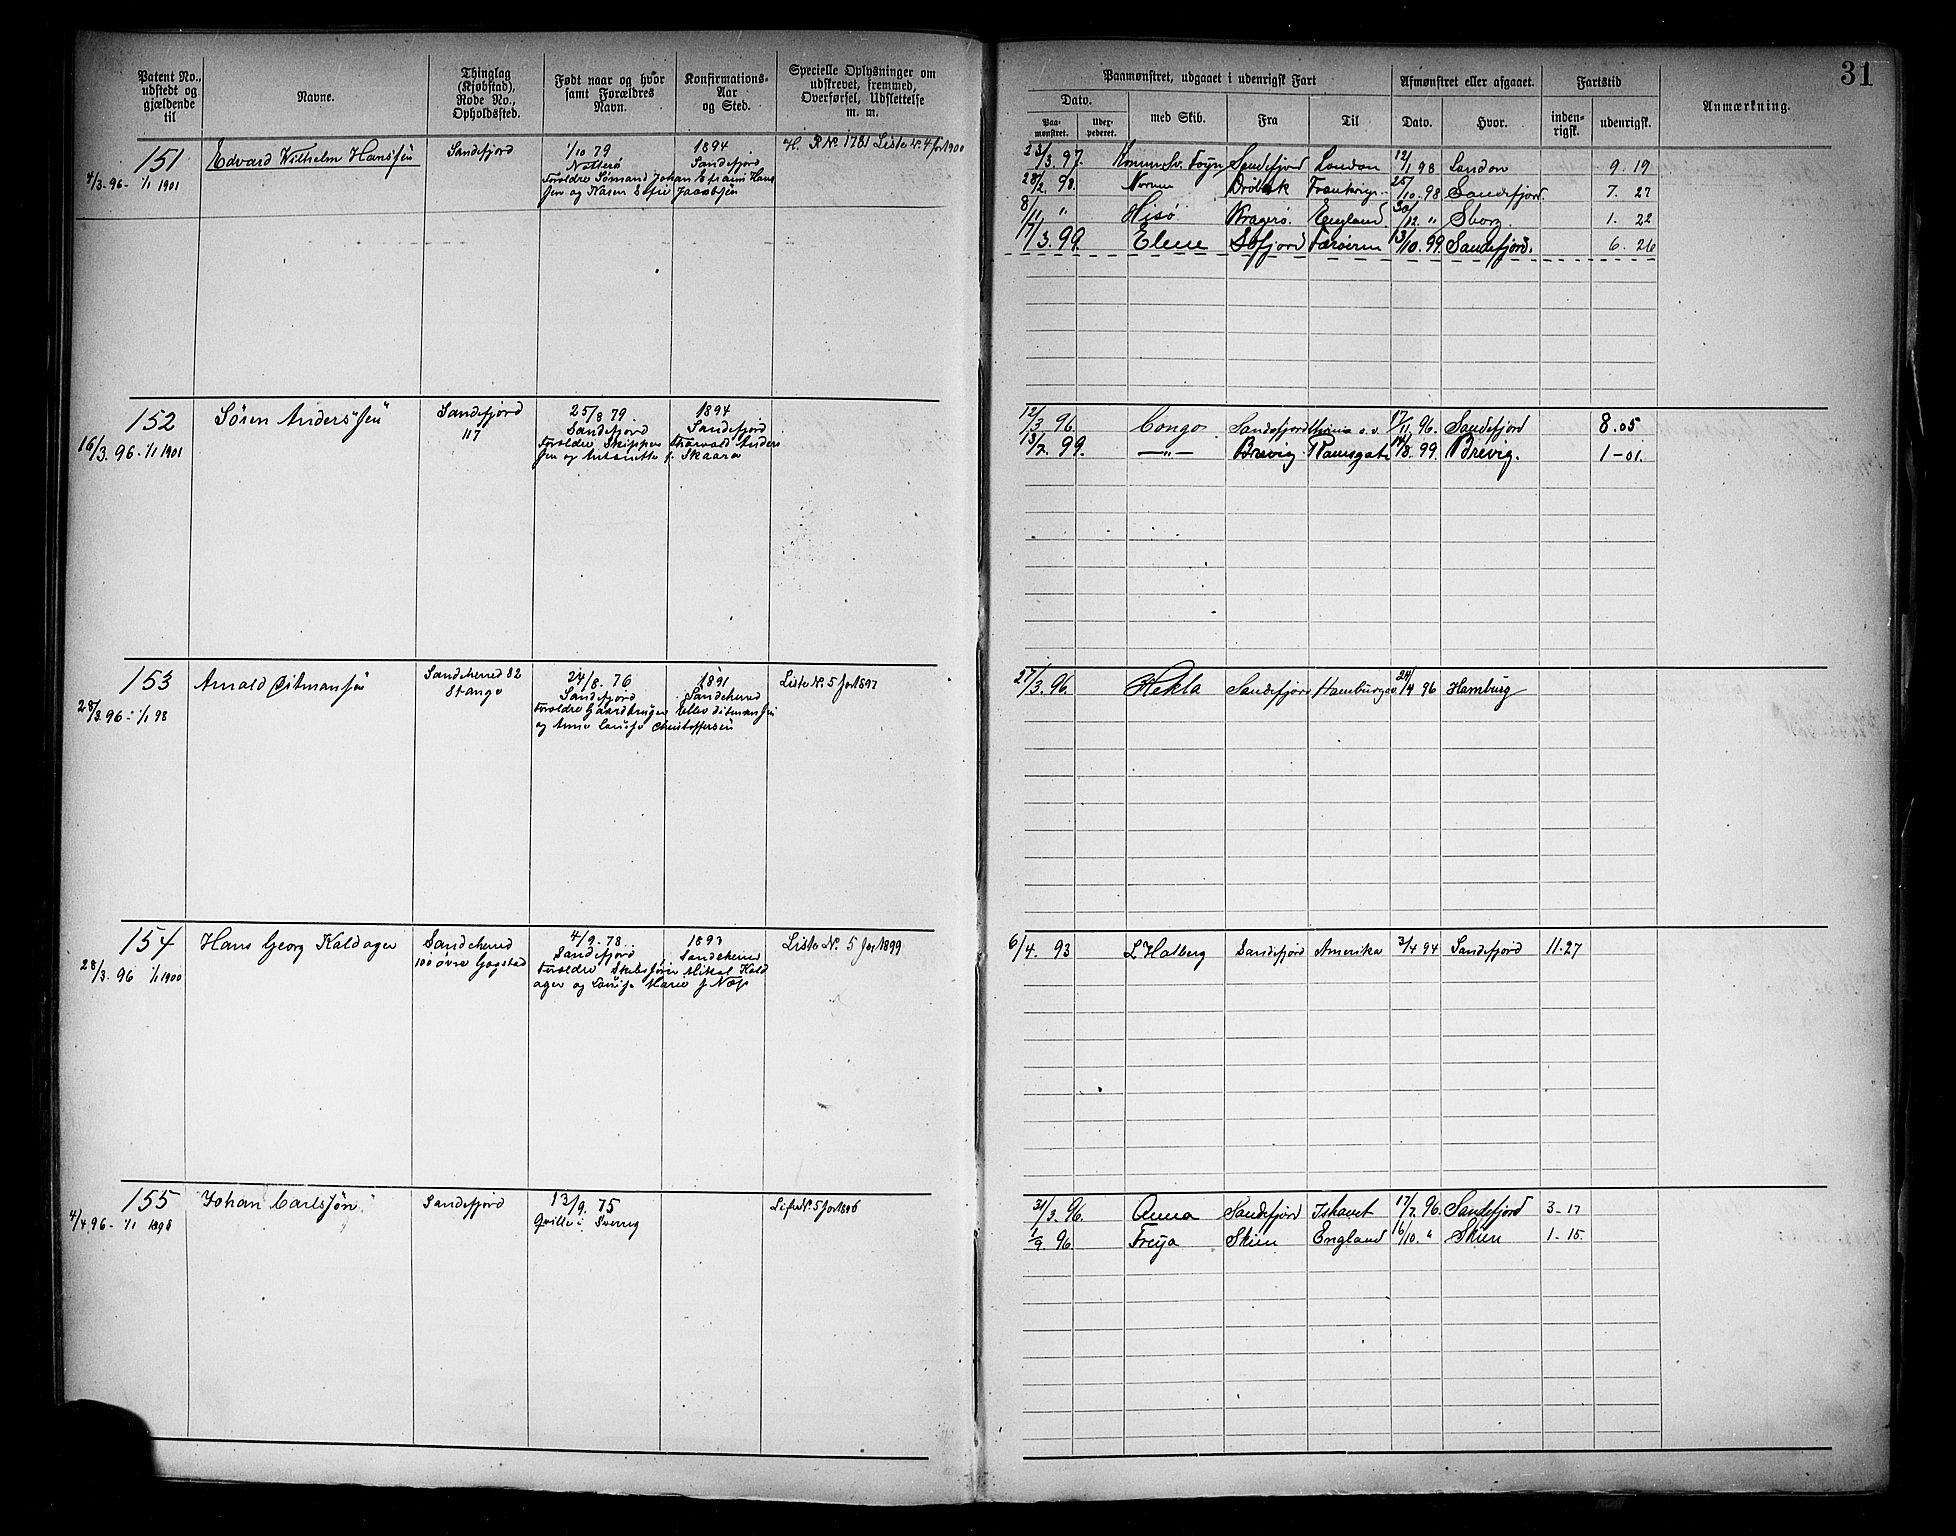 31
Patent No., udstedt og gjældende til
Navne.
Thinglag (Kjøbstad), Rode No., Opholdssted.
Født naar og hvor samt Forældres Navn.
Konfirmations-Aar og Sted.
Specielle Oplysninger om udskrevet, fremmed, Overførsel, Udslettelse m. m.
Paamønstret, udgaaet i udenrigsk Fart
Afmønstret eller afgaaet.
Fartstid
Anmærkning.
Dato.
Paa-mønstret.
med Skib.
Fra
Til
Dato.
Hvor.
inden-rigsk.
udenrigsk.
151 Edvard Wilhelm Hanssen Sandefjord 1/10 79 1894 H. R No. 1781 Liste No. 4 for 1900
4/3-96- 1/1 1901 Nøtterø Sandefjord
Foreldre Sømand Johan Efraim Hans
sen og Karen Jacobsen
23/3. 97. Sv. Foyn Sandefjord London 12/1 98 London 9. 19
28/2. 98. Norma Drøbak Frankrige 25/10. 98 Sandefjord. 7. 27
8/11 " Hisø Kragerø. England. 30/12. " Sborg 1. 22
17/3. 99. Elene Sdfjord Færøerne 13/10. 99. Sandefjord. 6. 26
152 Søren Anderssen Sandefjord 25/8 79. 1894
117 Sandefjord Sandefjord
16/3. 96- 1/1 1901 Foreldre Skipper Thorvald Anders
sen og f. Skaara
12/3. 96 Congo. Sandefjord o.v. 17/11. 96. Sandefjord 8.05
13/2. 99. —"— Brevig Ramsgate 14/3. 99. Brevig. 1-01.
153 Arnold Ditmanssen Sandeherred 82 24/8. 76 1891 Liste No. 5 for 1897
Stange Sandefjord Sandeherred
28/3. 96 - 1/1 98 Foreldre Gaardbruger Ellev Ditmanssen
og Anne Louise Christoffersen
27/3. 96 Hekla Sandefjord Hamburg 24/4 96 Hamburg
154 Hans Georg Kaldager Sandeherred 4/9. 78. 1893 Liste No. 5 for 1899
100 øvre Gogstad Sandefjord Sandeherred
28/3. 96 1/1 1900 Foreldre Skibsfører Mikal Kald
ager og Louise Marie f Næss
6/4. 93 L Holberg Sandefjord Amerika 3/4 94 Sandefjord 11-27
155 Johan Carlsson Sandefjord 13/9. 75 Liste No. 5 for 1896
4/4 96 - 1/1 1898 Sverrig
31/3. 96. Anna Sandefjord Ishavet 17/7. 96. Sandefjord 3-17
1/9. 96 Freya Skien England 16/10. " Skien 1-15.